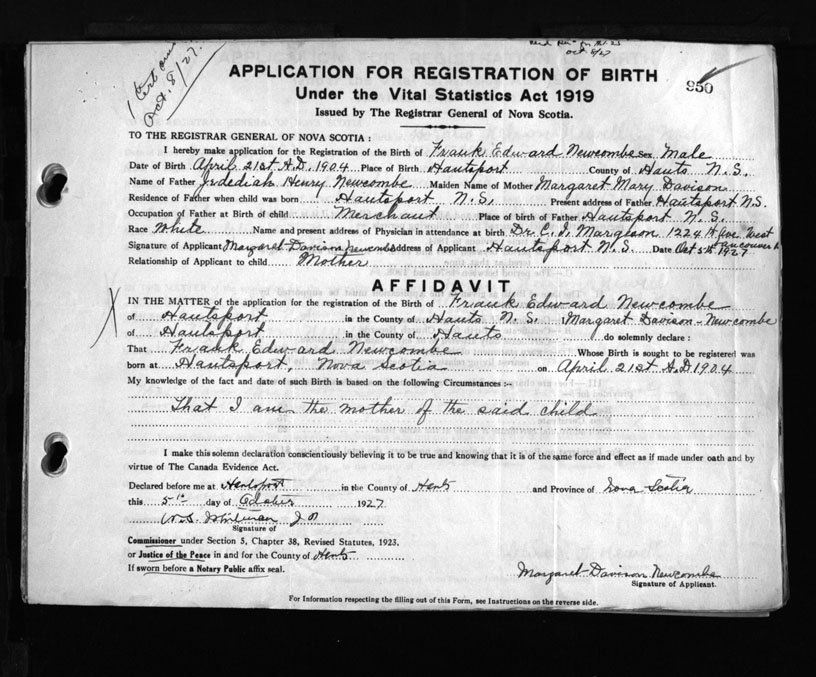 1 Cert
Oct. 8/27.
Oct 8/27
950
APPLICATION FOR REGISTRATION OF BIRTH
Under the Vital Statistics Act 1919
Issued by The Registrar General of Nova Scotia.
TO THE REGISTRAR GENERAL OF NOVA SCOTIA :
I hereby make application for the Registration of the Birth of Frank Edward Newcombe Sex Male
Date of Birth April 21st A.D. 1904 Place of Birth Hantsport County of Hants N.S.
Name of Father Jedediah Henry Newcombe Maiden Name of Mother Margaret Mary Davison
Residence of Father when child was born Hantsport N.S. Present address of Father Hantsport N.S.
Occupation of Father at Birth of child Merchant Place of birth of Father Hantsport N.S.
Race White Name and present address of Physician in attendance at birth Dr. C. I. Margeson 1224 Ave. West Vancouver
Signature of Applicant Margaret Davison Newcombe Address of Applicant Hantsport N.S. Date Oct 5th 1927
Relationship of Applicant to child Mother
AFFIDAVIT
IN THE MATTER of the application for the registration of the Birth of Frank Edward Newcombe
of Hantsport in the County of Hants N.S. Margaret Davison-Newcombe
of Hantsport in the County of Hants do solemnly declare :
That Frank Edward Newcombe Whose Birth is sought to be registered was
born at Hantsport, Nova Scotia on April 21st A.D 1904
My knowledge of the fact and date of such Birth is based on the following Circumstances :-
That I am the mother of the said child
I make this solemn declaration conscientiously believing it to be true and knowing that it is of the same force and effect as if made under oath and by
virtue of The Canada Evidence Act.
Declared before me at Hantsport in the County of Hants and Province of Nova Scotia
this 5th day of October 1927
J P
Signature of
Commissioner under Section 5, Chapter 38, Revised Statutes, 1923,
or Justice of the Peace in and for the County of Hants
If sworn before a Notary Public affix seal.
Margaret Davison Newcombe
Signature of Applicant.
For Information respecting the filling out of this Form, see Instructions on the reverse side.